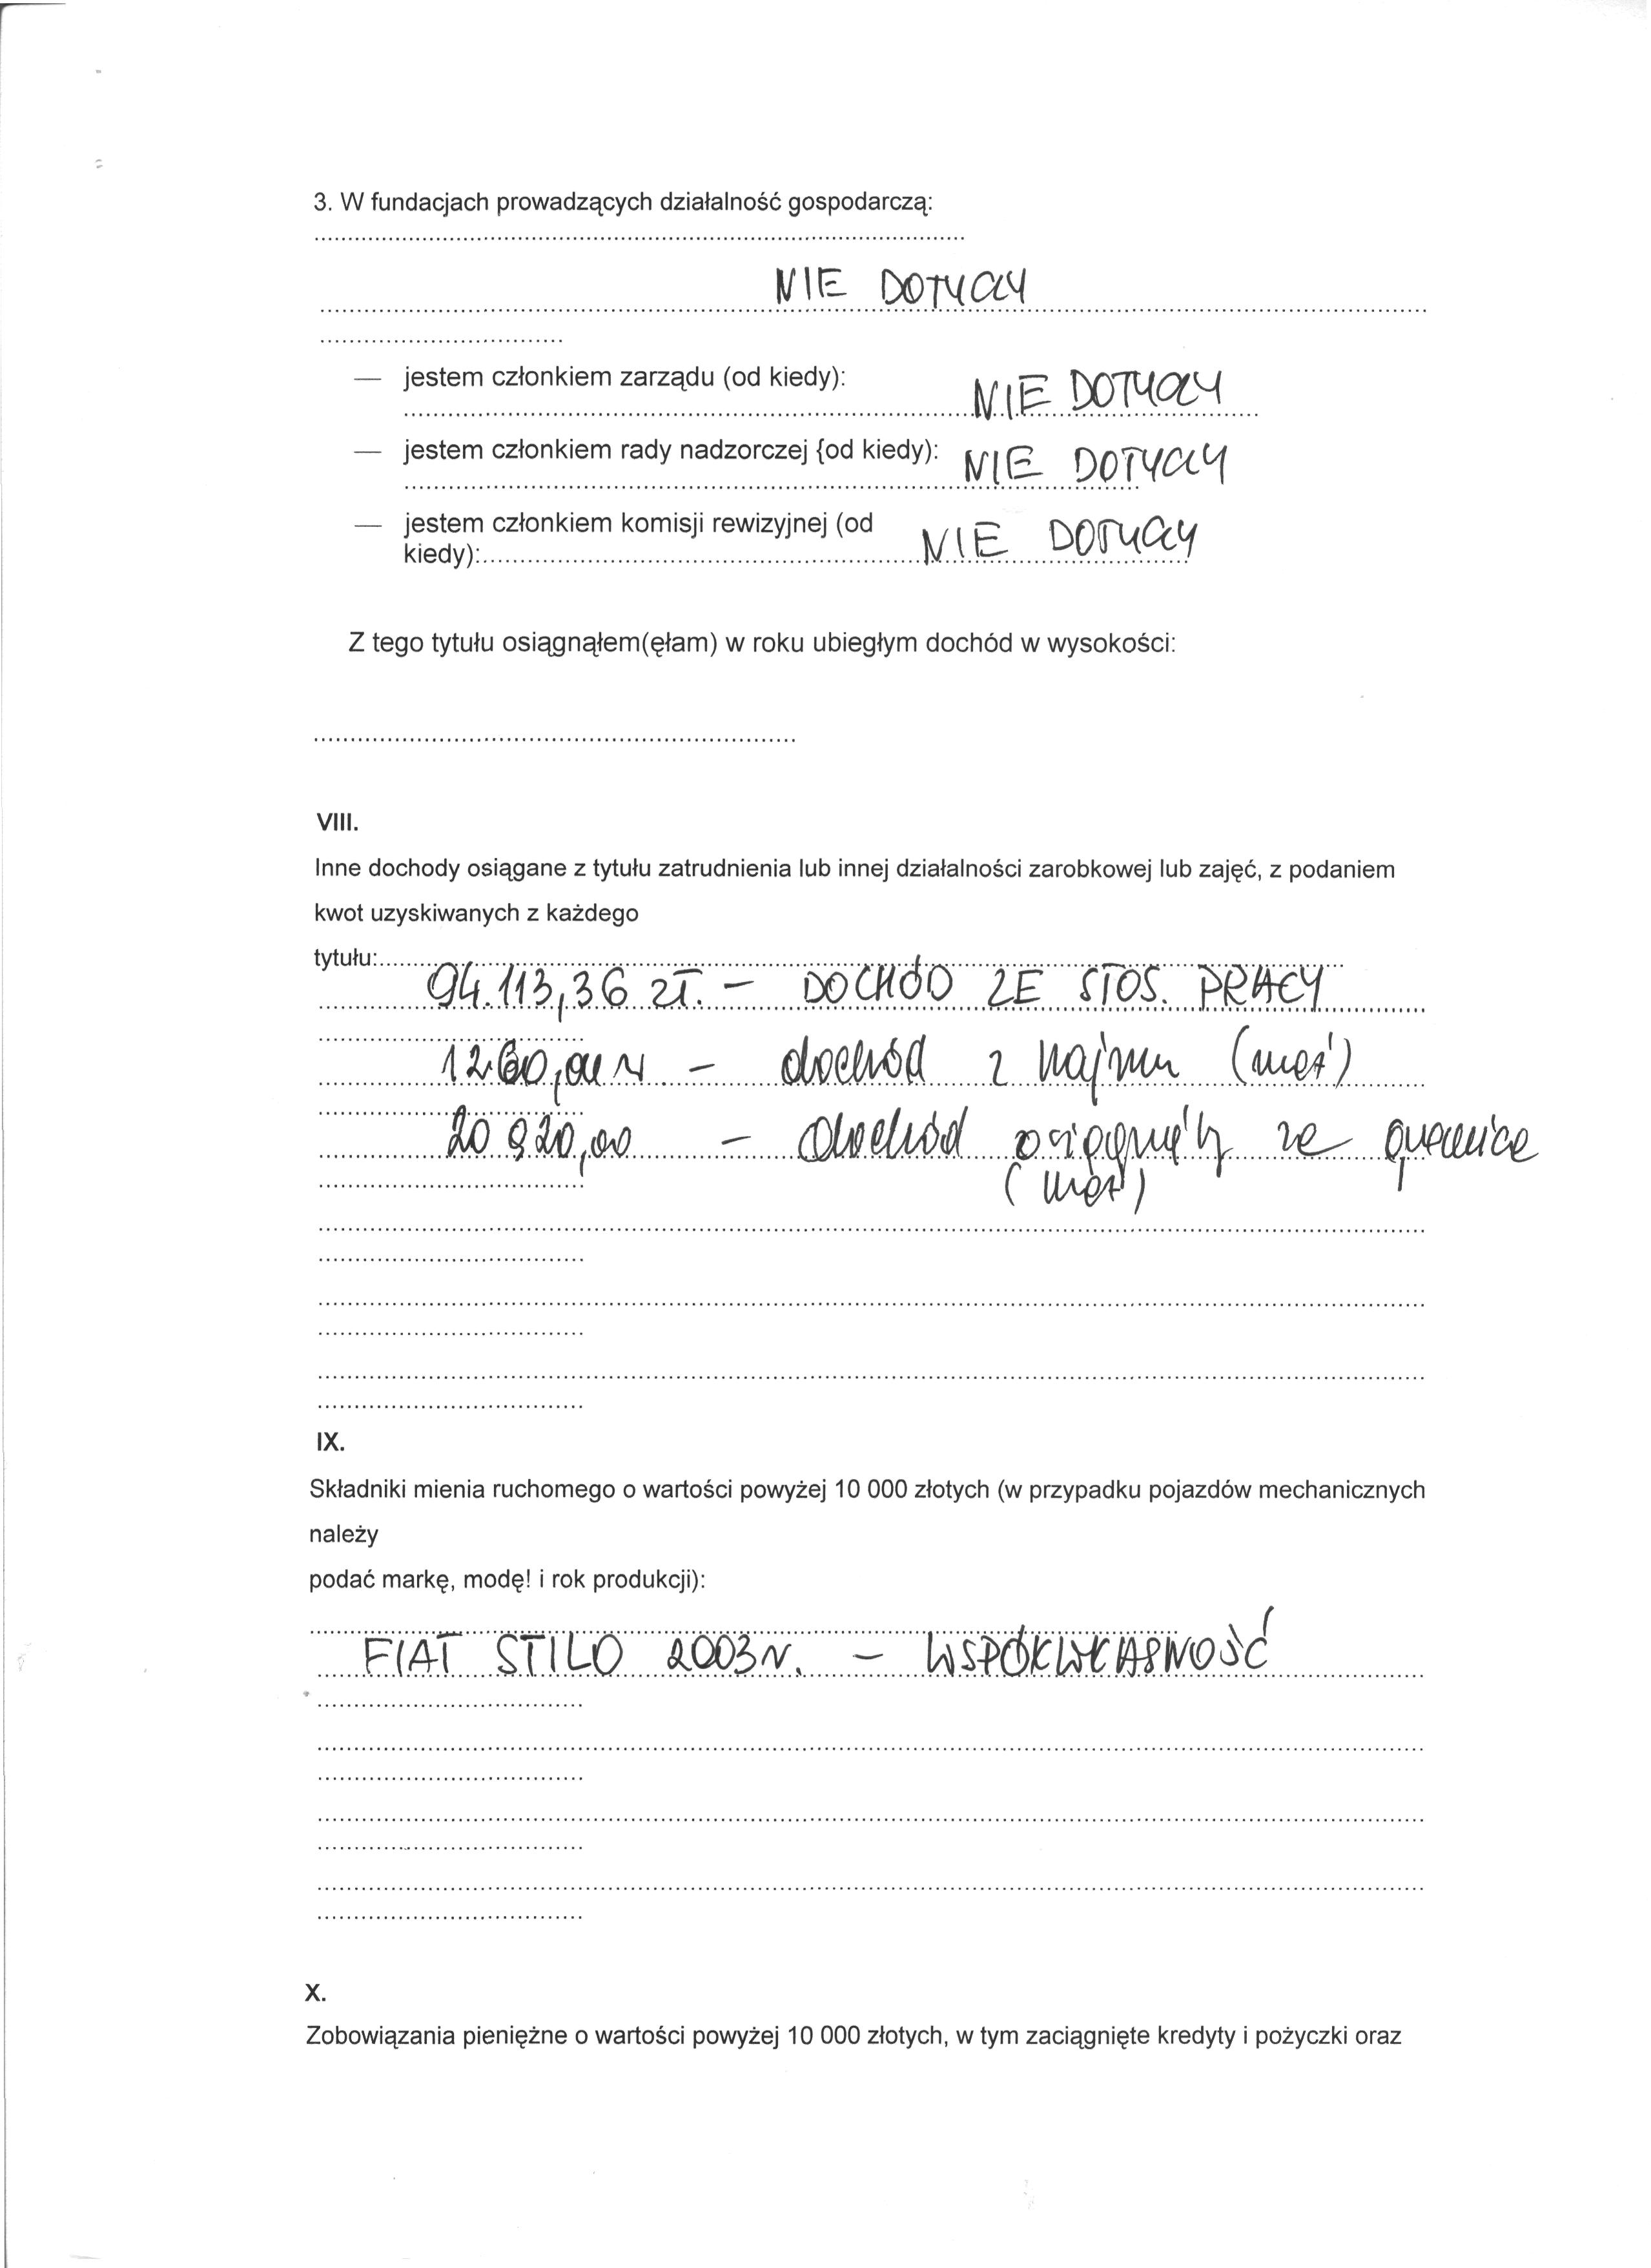 3. W fundacjach prowadzących działalność gospodarczą:
NIE DOTYCZY
— jestem członkiem zarządu (od kiedy): NIE DOTYCZY
— jestem członkiem rady nadzorczej {od kiedy): NIE DOTYCZY
— jestem członkiem komisji rewizyjnej (od
kiedy): NIE DOTYCZY
Z tego tytułu osiągnąłem(ęłam) w roku ubiegłym dochód w wysokości:
VIII.
Inne dochody osiągane z tytułu zatrudnienia lub innej działalności zarobkowej lub zajęć, z podaniem
kwot uzyskiwanych z każdego
tytułu:
94.113,36 zł. – DOCHÓD ZE STOS. PRACY
– dochód z najmu (mąż)
20 920,00 – dochód osiągnięty za granicą
(mąż)
IX.
Składniki mienia ruchomego o wartości powyżej 10 000 złotych (w przypadku pojazdów mechanicznych
należy
podać markę, modę! i rok produkcji):
FIAT STILO 2003 r. – WSPÓŁWŁASNOŚĆ
X.
Zobowiązania pieniężne o wartości powyżej 10 000 złotych, w tym zaciągnięte kredyty i pożyczki oraz